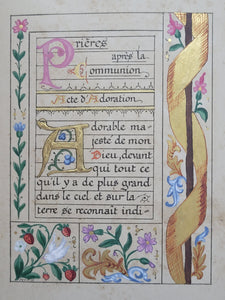 Prières
après la
Communion
Acte d'Adoration
Adorable ma-
jesté de mon
Dieu, devant
qui tout ce
qu'il y a de plus grand
dans le ciel et sur la
terre se reconnaît indi-